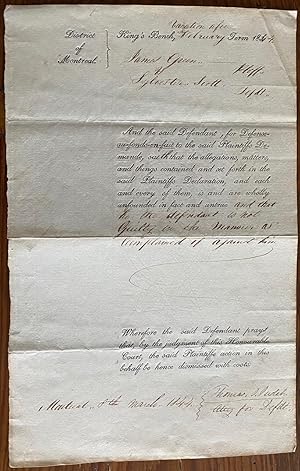 Vacation after
District of Montreal. } King's Bench, February Term 1844.
James Green
Pltff.
vs
Sylvester Scott
Defdt.
And the said Defendant, for Defense-
au-fonds-en-fait to the said Plaintiffs De-
mande, saith that the allegations, matters,
and things contained and set forth in the
said Plaintiffs Declaration, and each
and every of them, is and are wholly
unfounded in fact and untrue and that
he the defendant is not
Guilty in the Manner as
Complained of against him
Wherefore the said Defendant prays
that, by the judgment of this Honourable
Court, the said Plaintiffs action in this
behalf be hence dismissed with costs.
Montreal 8th March 1844
Thomas
Atty for Defdt.